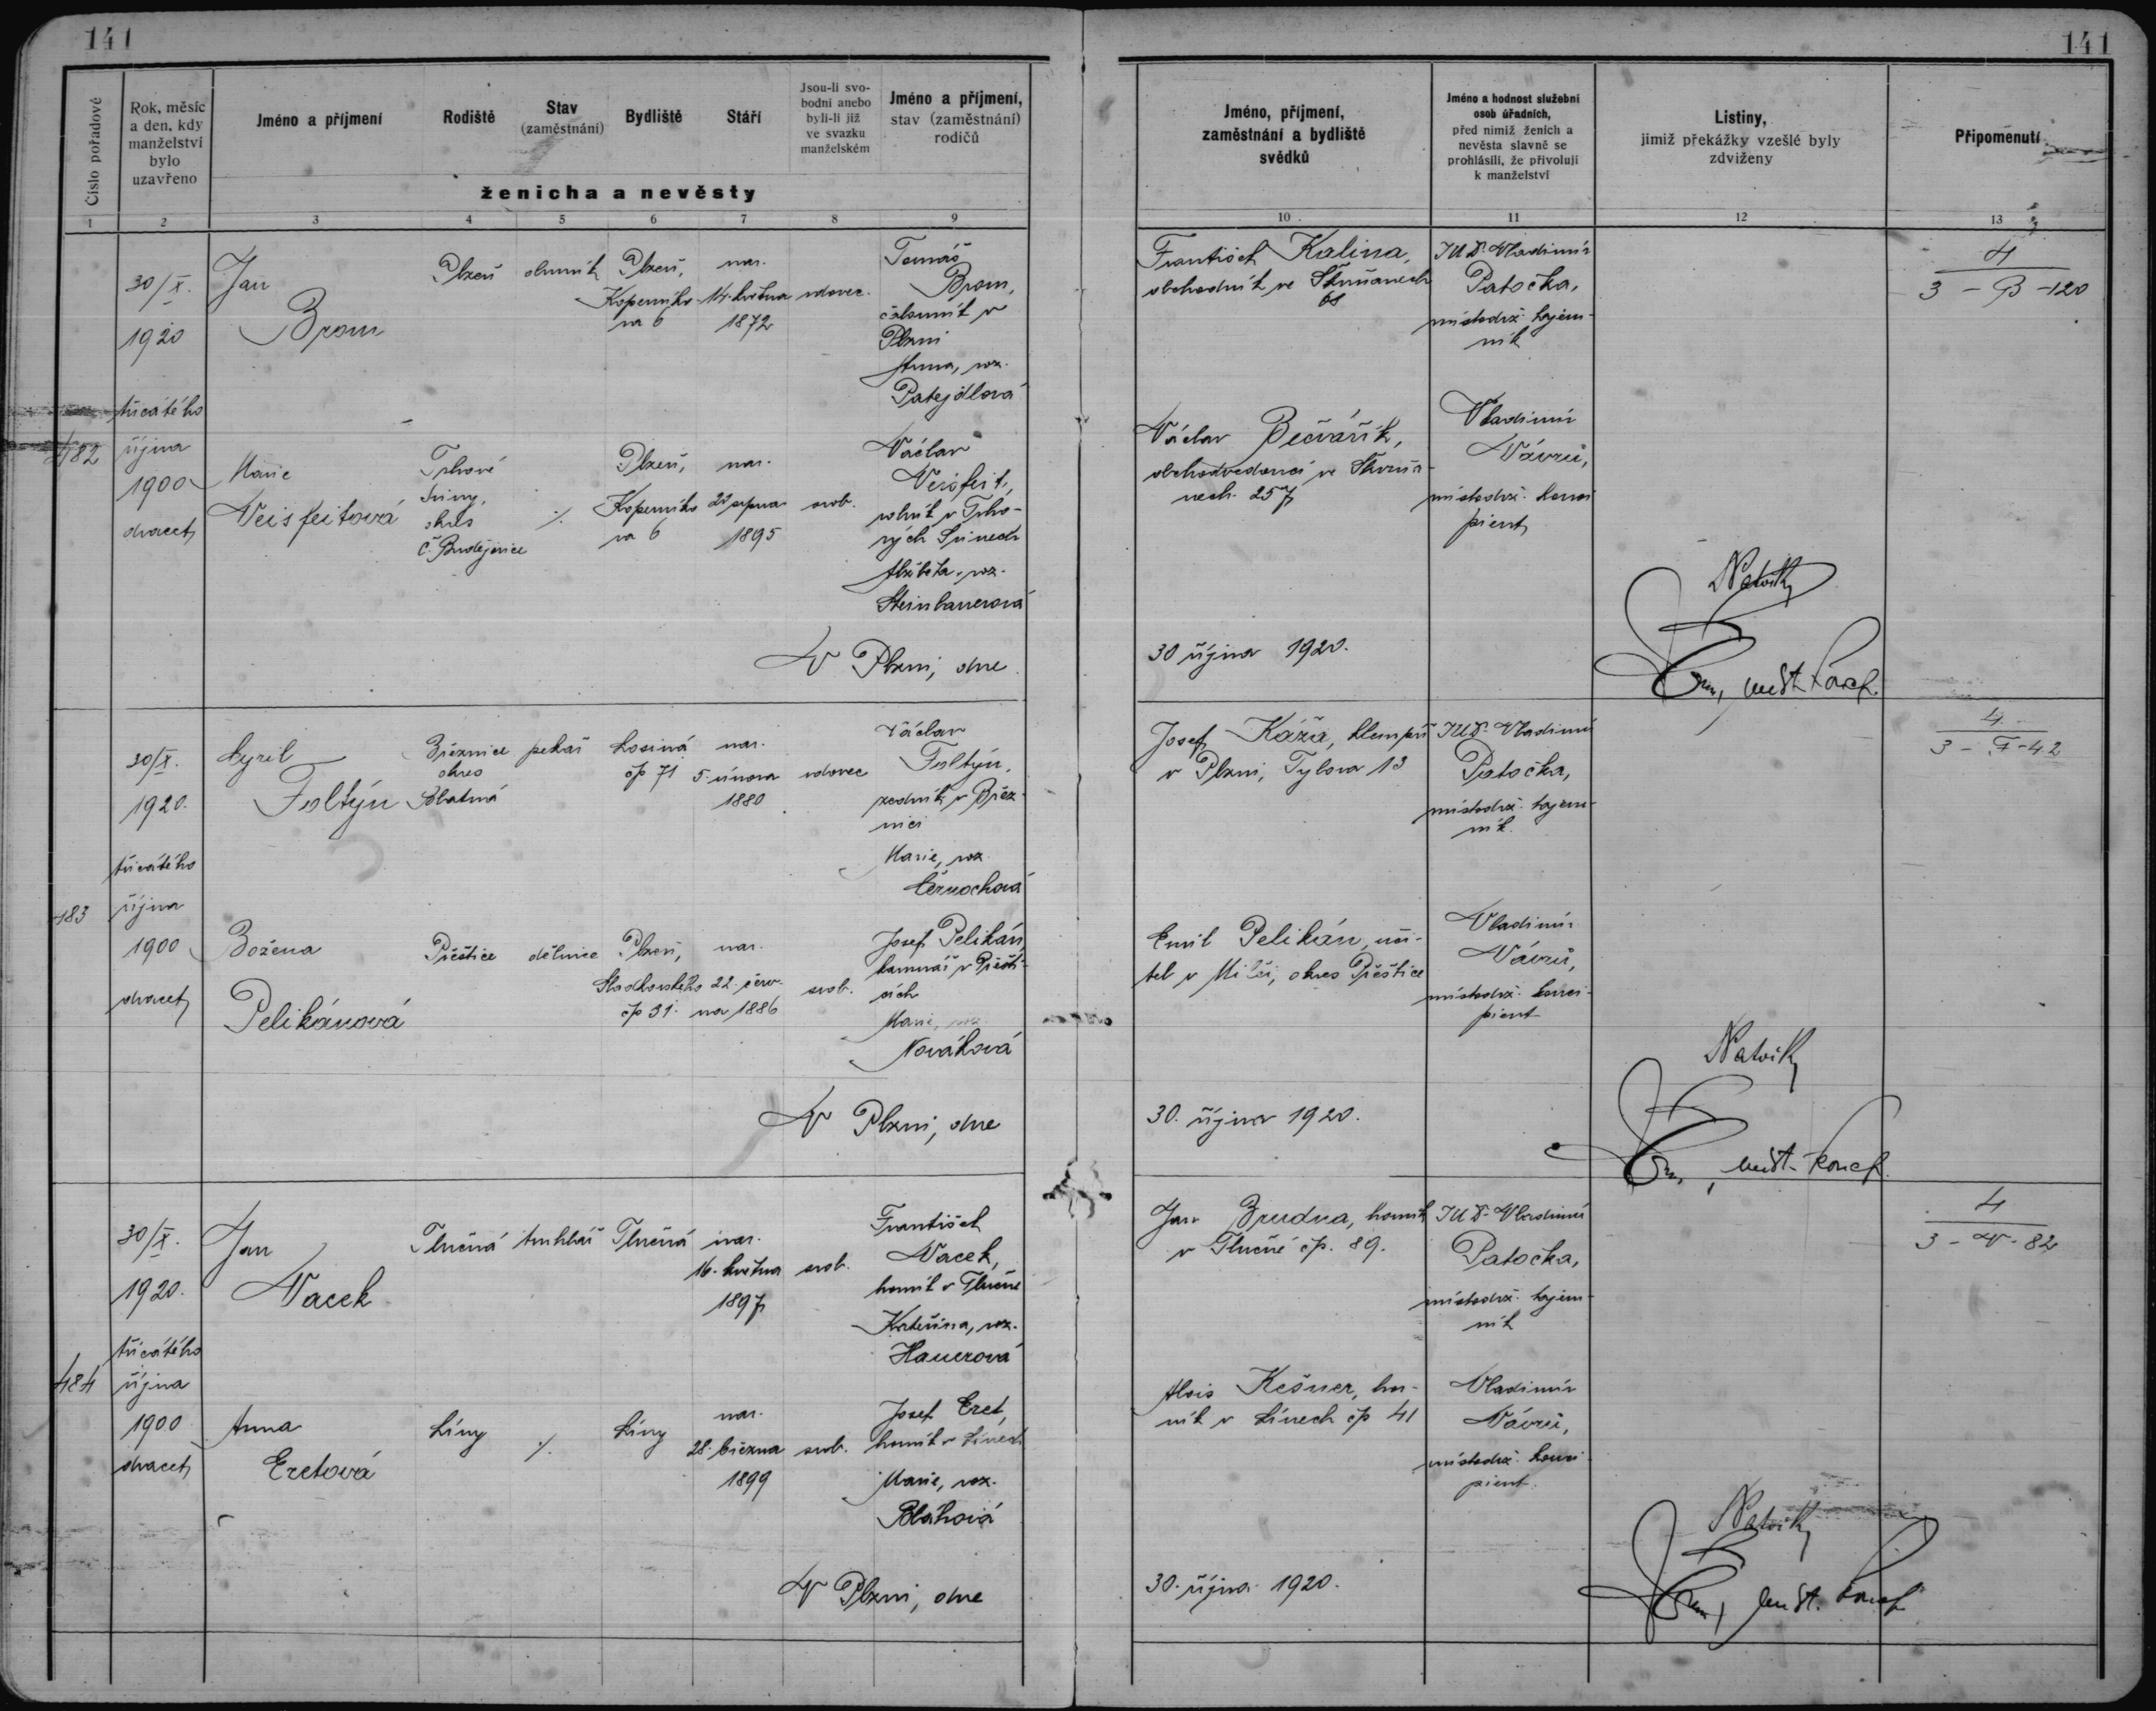 141
141
Číslo pořadové
Rok, měsíc
a den, kdy
manželství
bylo
uzavřeno
Jméno a příjmení
Rodiště
Stav
(zaměstnání)
Bydliště
Stáří
Jsou-li svo-
bodni anebo
byli-li již
ve svazku
manželském
Jméno a příjmení,
stav (zaměstnání)
rodičů
ženicha a nevěsty
Jméno, příjmení,
zaměstnání a bydliště
svědků
Jméno a hodnost služební
osob úřadních,
před nimiž ženich a
nevěsta slavně se
prohlásili, že přivolují
k manželství
Listiny,
jimiž překážky vzešlé byly
zdviženy
Připomenutí
1 2 3 4 5 6 7 8 9 10 11 12 13
482
30/X.
1920
třicátého
října
1900
dvacet
Jan
Brom
Plzeň
Plzeň,
Koperníko-
va 6
nar.
14. května
1872
vdovec.
Tomáš
Brom,
v
Plzni
Anna, roz.
Patejdlová
Marie
Veisfeitová
Trhové
Sviny,
okres
Č. Budějovice
./.
Plzeň,
Koperníko
va 6
nar.
srpna
1895
svob.
Václav
Veisfeit,
rolník v Trho-
vých Svinech
Alžběta, roz.
Steinbauerová
V Plzni, dne
František Kalina,
obchodník ve Skvrňanech
JUDr. Vladimír
Patočka,
místodrž. tajem-
ník
4
3 - B - 120
Václav Bečvářík,
obchodvedoucí ve Skvrňa-
nech 257
Vladimír
Návrů,
místodrž. konci
pient
30 října 1920.
483
30/X.
1920.
třicátého
října
1900
dvacet
Cyril
Foltýn
Březnice
okres
Blatná
pekař
Losiná
čp 71
nar.
5. února
1880
vdovec
Václav
Foltýn,
zedník v Břez-
nici
Marie, roz.
Černochová
Božena
Pelikánová
Přeštice
dělnice
Plzeň,
Sladkovského
čp 31.
nar.
22. červ-
na 1886
svob.
Josef Pelikán,
kamnář v Přešti-
cích
Marie, roz.
Nováková
V Plzni, dne
Josef Káža, klempíř
v Plzni, Tylova 13
JUDr. Vladimír
Patočka,
místodrž. tajem-
ník.
4
3 - F - 42
Emil Pelikán, uči-
tel v Milči, okres Přeštice
Vladimír
Návrů,
místodrž. konci-
pient
30. října 1920.
484
30/X.
1920.
třicátého
října
1900
dvacet
Jan
Vacek
Tlučná
truhlář
Tlučná
nar.
16. května
1897
svob.
František
Vacek,
horník v Tlučné
Kateřina, roz.
Hauerová
Anna
Eretová
Líny
./.
Líny
nar.
28. března
1899
svob.
Josef Eret,
horník v Línech
Marie, roz.
Bláhová
V Plzni, dne
Jan Brudna, horník
v Tlučné čp. 89.
JUDr. Vladimír
Patočka,
místodrž. tajem-
ník
4
3 - V - 82
Alois Kešner, hor-
ník v Línech čp 41
Vladimír
Návrů,
místodrž. konci
pient.
30. října 1920.